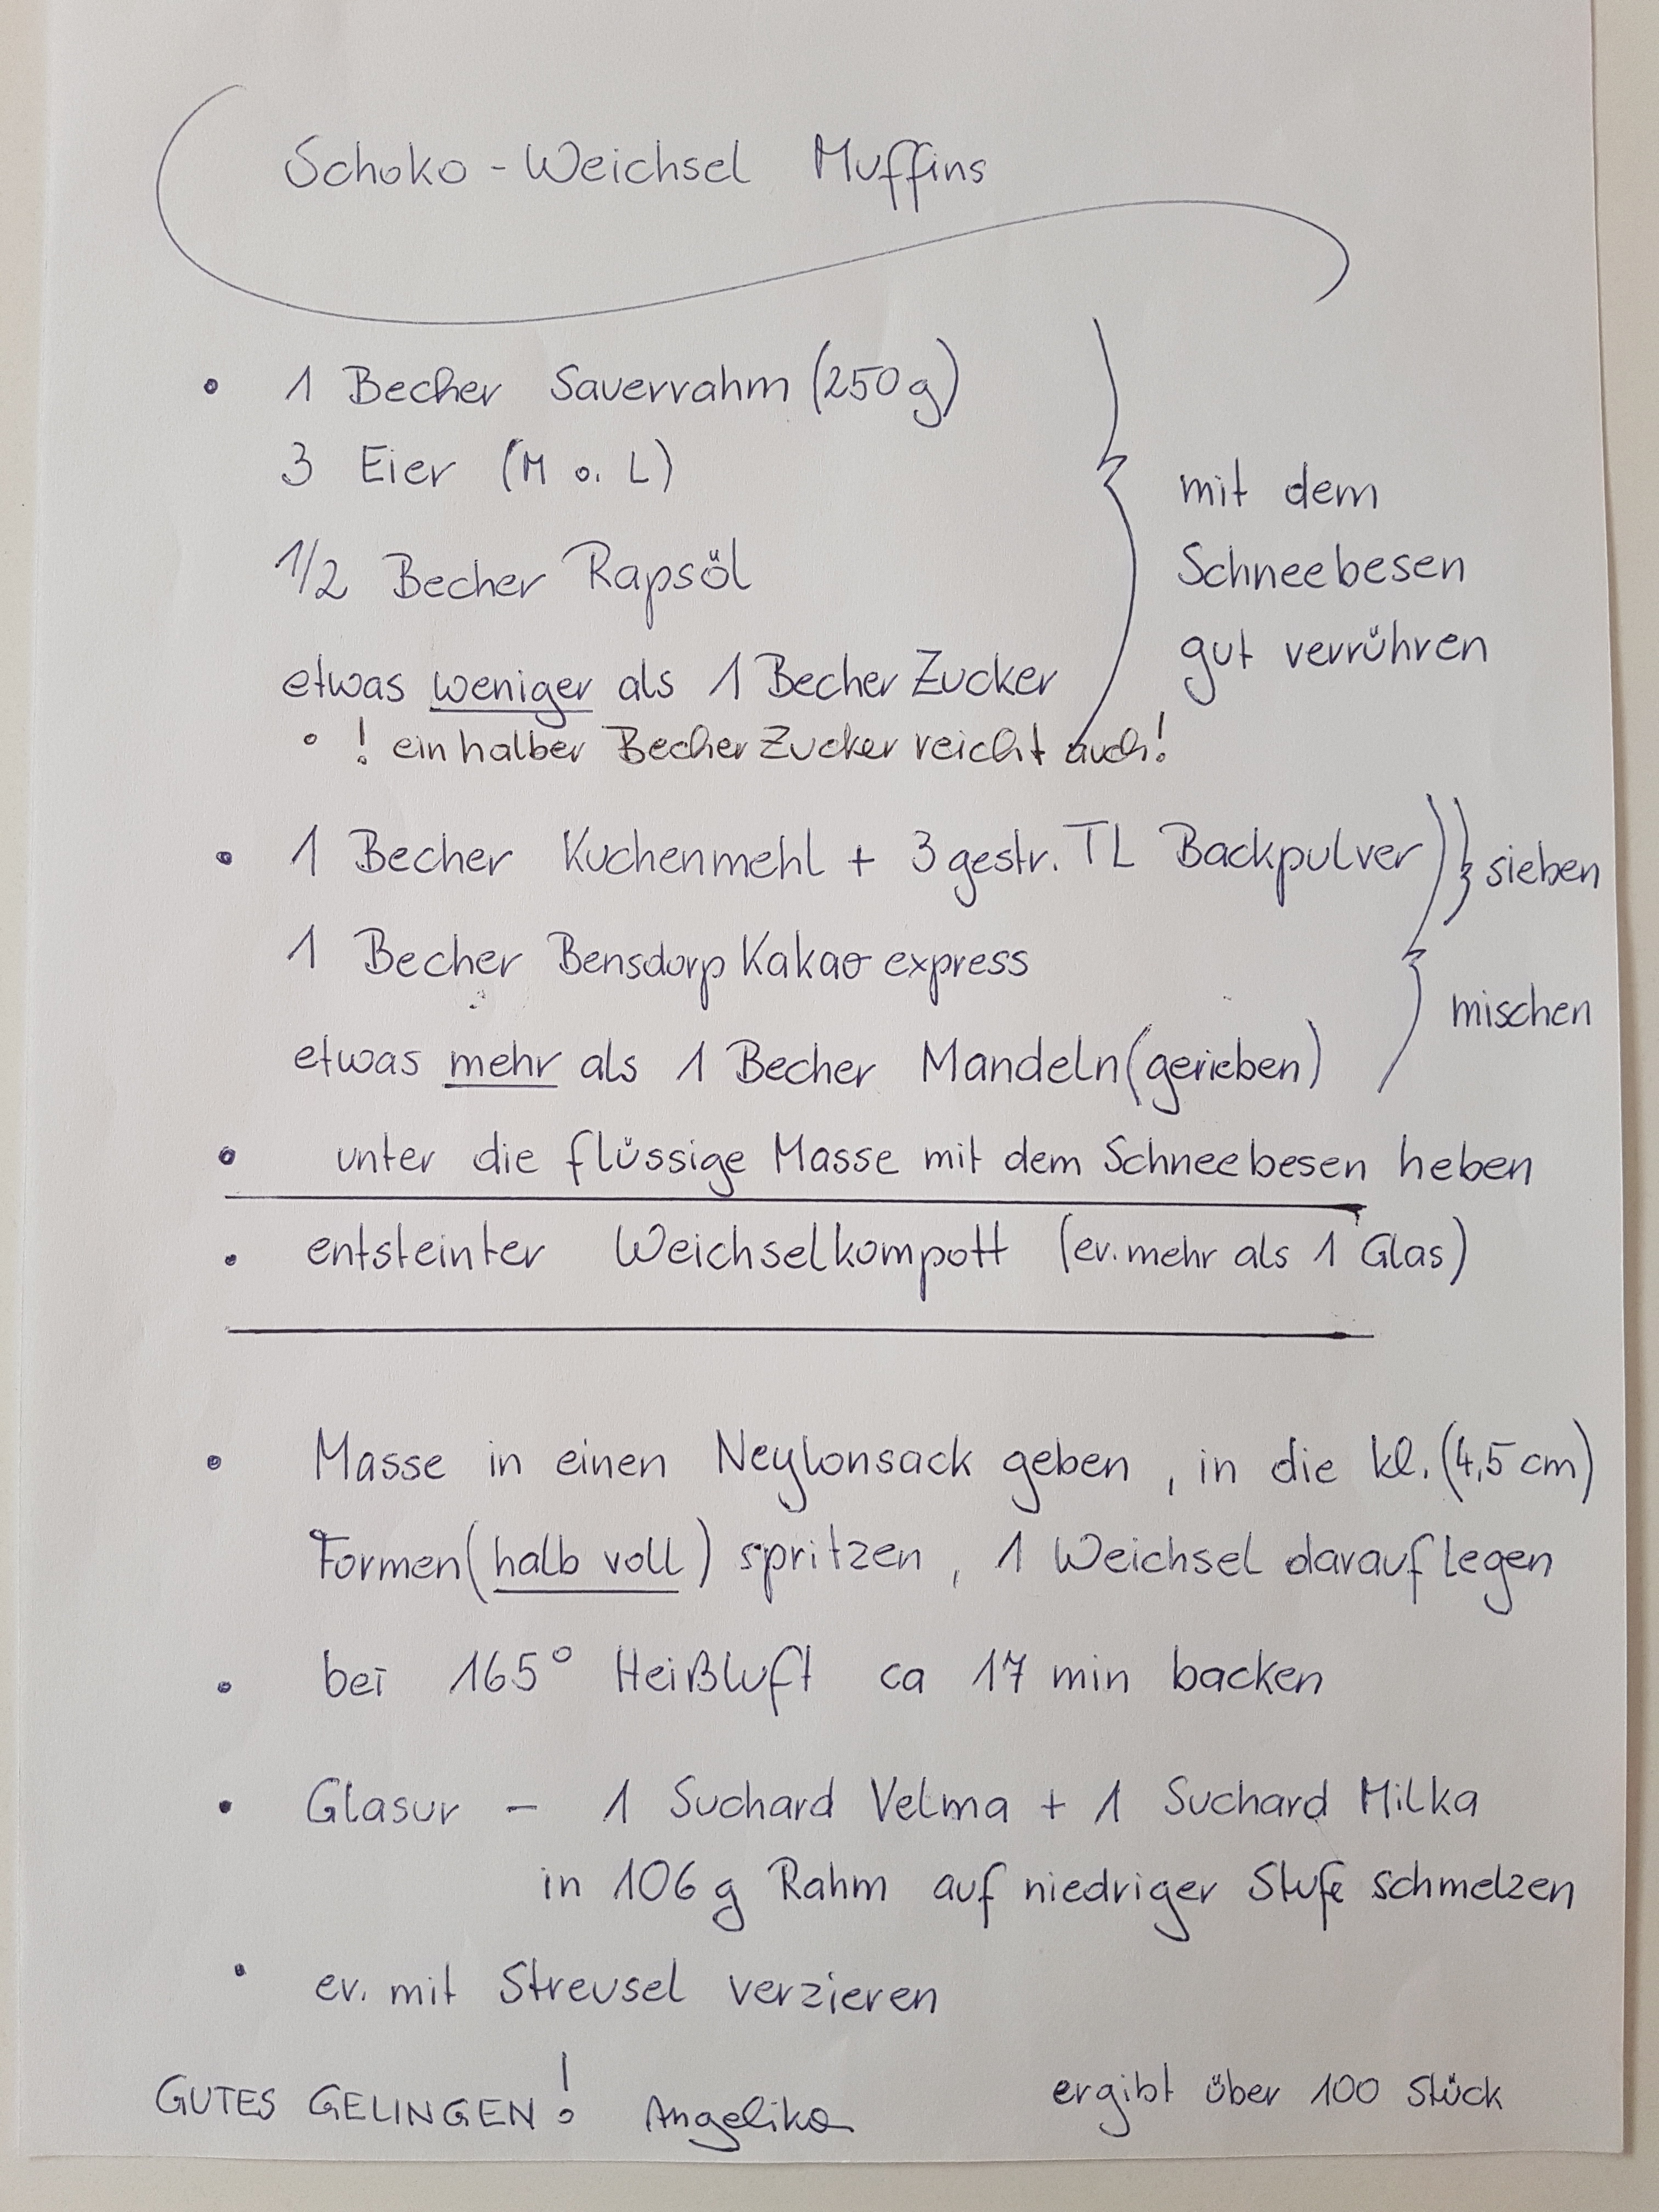 Schoko - Weichsel Muffins
• 1 Becher Sauerrahm (250 g)
3 Eier (M o. L)
1/2 Becher Rapsöl
etwas weniger als 1 Becher Zucker
mit dem
Schneebesen
gut verrühren
• ! ein halber Becher Zucker reicht auch!
• 1 Becher Kuchenmehl + 3 gestr. TL Backpulver
sieben
1 Becher Bensdorp Kakao express
etwas mehr als 1 Becher Mandeln (gerieben)
mischen
• unter die flüssige Masse mit dem Schneebesen heben
• entsteinter Weichselkompott (ev. mehr als 1 Glas)
• Masse in einen Neylonsack geben, in die kl. (4,5 cm)
Formen (halb voll) spritzen, 1 Weichsel darauf legen
• bei 165° Heißluft ca 17 min backen
• Glasur - 1 Suchard Velma + 1 Suchard Milka
in 106 g Rahm auf niedriger Stufe schmelzen
• ev. mit Streusel verzieren
GUTES GELINGEN! Angelika
ergibt über 100 Stück